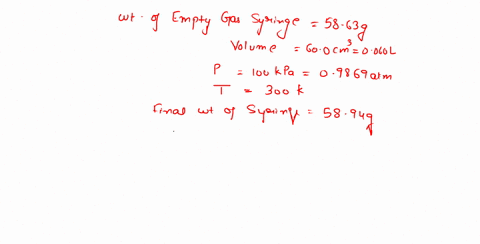 wt. of Empty Gas Syringe = 58.63g
Volume = 60.0 cm³ = 0.060L
P = 100 kPa = 0.9869 atm
T = 300 k
Final wt of Syringe = 58.94g